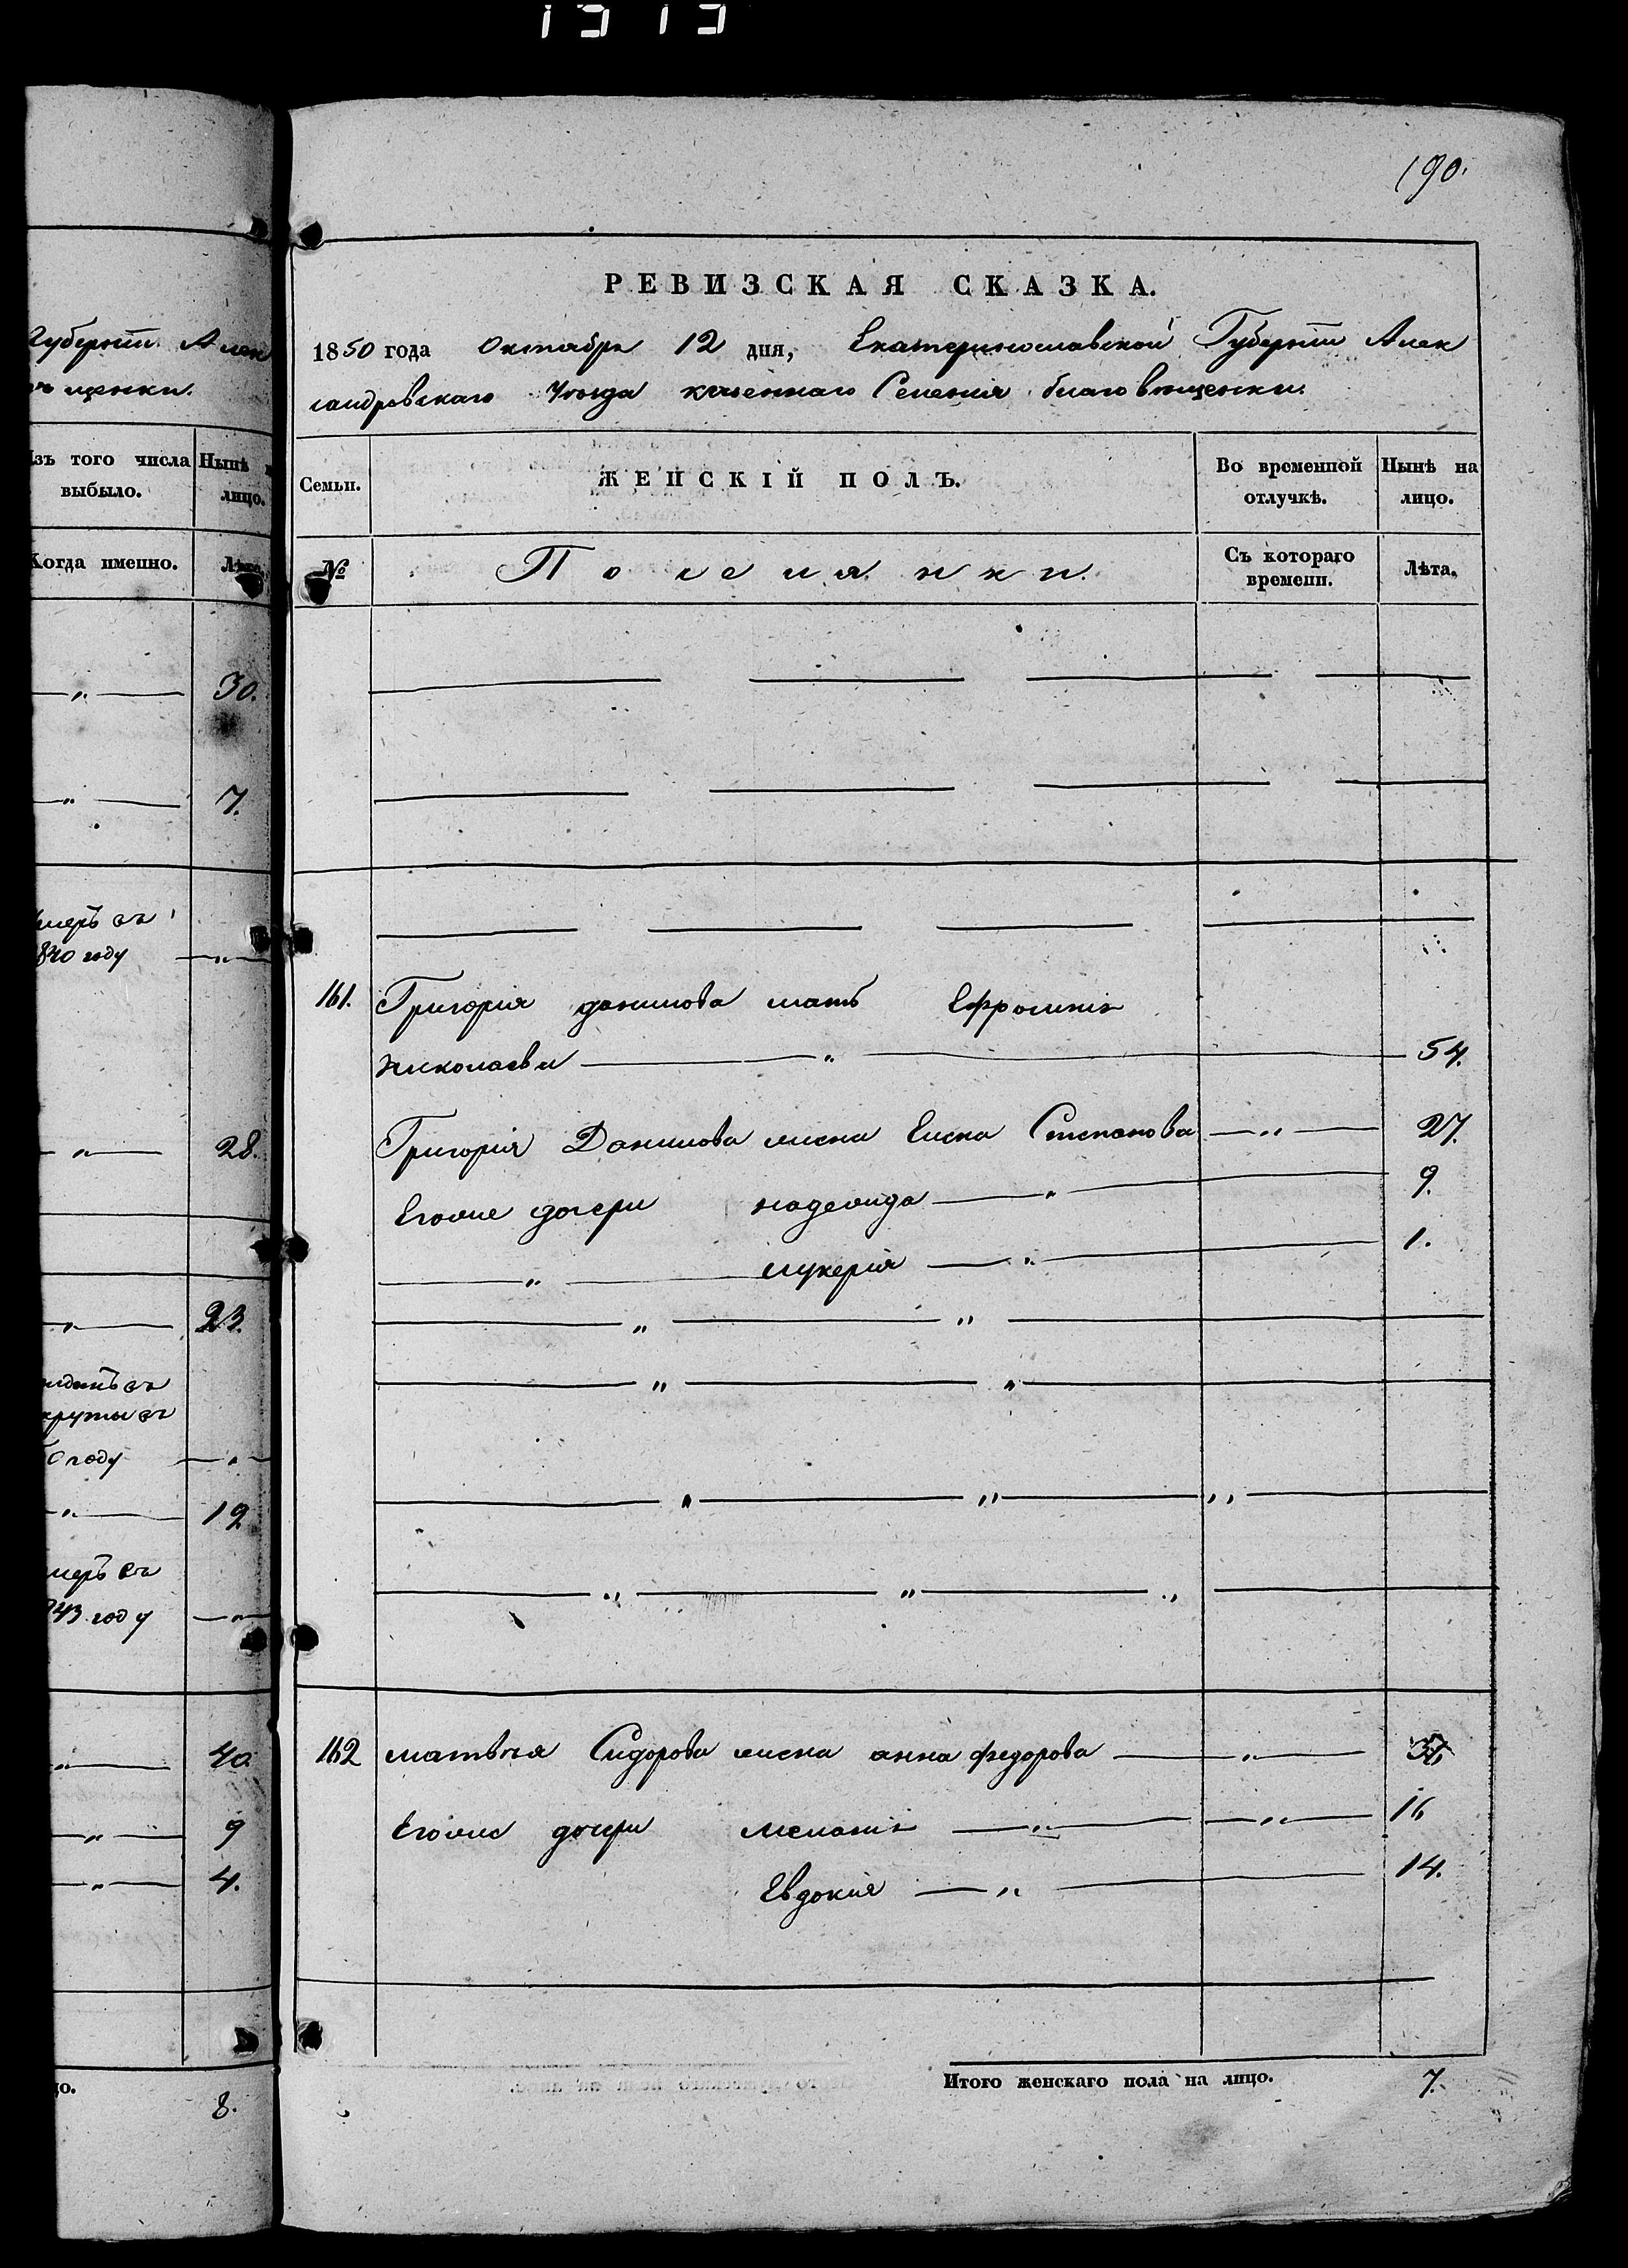 1313
190.
Губерніи Алек
щенки.
Изъ того числа выбыло.
Нынѣ на лицо.
Когда именно.
Лѣта.
30.
7.
умеръ въ
1840 году
28.
23.
въ
рекруты въ
году
19
умеръ въ
1843 году
40.
9
4.
8.
РЕВИЗСКАЯ СКАЗКА.
1850 года Октября 12 дня, Екатеринославской Губерніи Алек
сандровскаго Уѣзда казеннаго Селенія благовѣщенки.
Семьи.
ЖЕНСКІЙ ПОЛЪ.
Во временной отлучкѣ.
Нынѣ на лицо.
№
Поселянки.
Съ котораго времени.
Лѣта.
161. Григорія данилова мать Ефросинія
николаева 54.
Григорія Данилова жена Елена Степанова 27.
Егоже дочери надежда 9.
лукерія 1.
162 матвѣя Сидорова жена анна федорова
Егоже дочери меланія 16
Евдокія 14.
Итого женскаго пола на лицо. 7.